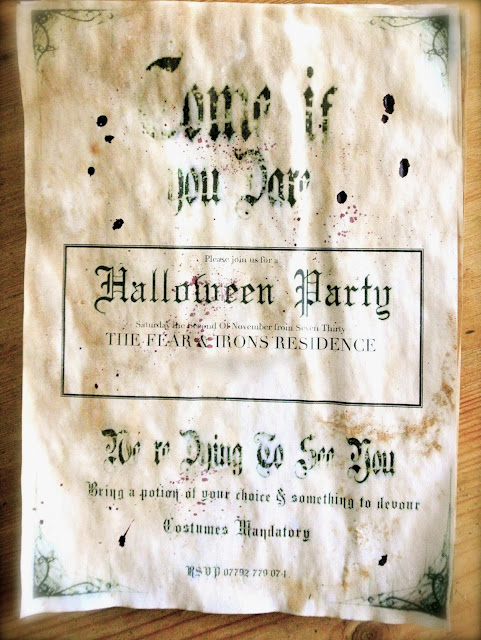 Come if
you Dare
Please join us for a
Halloween Party
Saturday the Second Of November from Seven Thirty
THE FEAR & IRONS RESIDENCE
We're Dying To See You
Bring a potion of your choice & something to devour
Costumes Mandatory
RSVP 07792 779 074